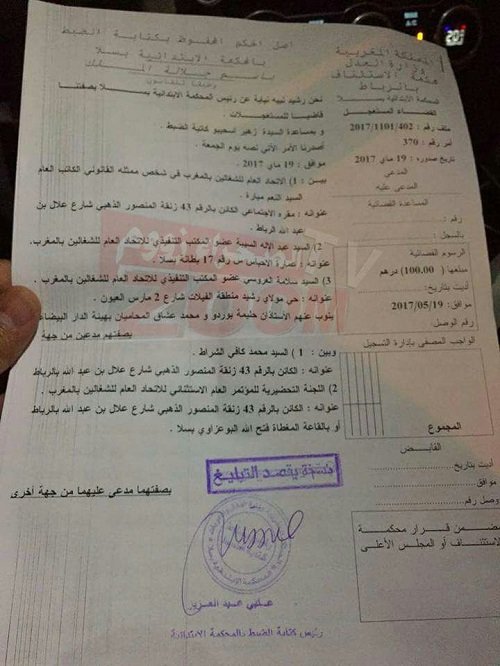 أصل الحكم المحفوظ بكتابة الضبط
بالمحكمة الابتدائية بسلا
باسم جلالة الملك
وطبقا للقانون
نحن رشيد نبيه نيابة عن رئيس المحكمة الابتدائية بسلا بصفتنا
قاضيا للمستعجلات .
و بمساعدة السيدة زهير اسحيبو كاتبة الضبط .
أصدرنا الأمر الآتي نصه يوم الجمعة .
موافق : 19 ماي 2017 .
بين : 1) الاتحاد العام للشغالين بالمغرب في شخص ممثله القانوني الكاتب العام
السيد النعم ميارة .
عنوانه : مقره الاجتماعي الكائن بالرقم 43 زنقة المنصور الذهبي شارع علال بن
عبد الله الرباط .
2) السيد عبد الإله السيبة عضو المكتب التنفيذي للاتحاد العام للشغالين بالمغرب.
عنوانه : عمارة الاحباس رقم 17 بطانة بسلا .
3) السيد سلامة العروسي عضو المكتب التنفيذي للاتحاد العام للشغالين بالمغرب .
عنوانه : حي مولاي رشيد منطقة الفيلات شارع 2 مارس العيون .
ينوب عنهم الأستاذان حليمة بوردو و محمد عشاق المحاميان بهيئة الدار البيضاء
بصفتهم مدعين من جهة
وبين : 1 ) السيد محمد كافي الشراط .
عنوانه : الكائن بالرقم 43 زنقة المنصور الذهبي شارع علال بن عبد الله بالرباط
2) اللجنة التحضيرية للمؤتمر العام الاستثنائي للاتحاد العام للشغالين بالمغرب .
عنوانه : الكائن بالرقم 43 زنقة المنصور الذهبي شارع علال بن عبد الله بالرباط
أو بالقاعة المغطاة فتح الله البوعزاوي بسلا .
نسخة بقصد التبليغ
بصفتهما مدعى عليهما من جهة أخرى
رئيس كتابة الضبط بالمحكمة الابتدائية
المملكة المغربية
وزارة العدل
محكمة الاستئناف
بالرباط
المحكمة الابتدائية بسلا
القضاء المستعجل
ملف رقم : 2017/1101/402
أمر رقم : 370
تاريخ صدوره : 19 ماي 2017
المدعي
المدعى عليه
المساعدة القضائية
رقم :
بالسجل :
الرسوم القضائية
مبلغها (100.00) درهم
أديت بتاريخ :
موافق: 2017/05/19
رقم الوصل
الواجب المصفى بإدارة التسجيل
المجموع
القابض
أديت بتاريخ
موافق
وصل رقم
مضمن قرار محكمة
الاستئناف أو المجلس الأعلى
TV